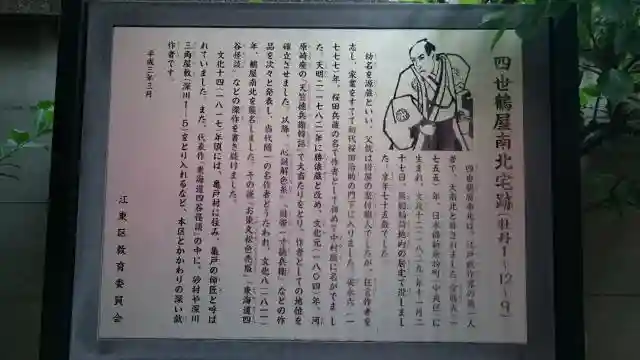 四世鶴屋南北宅跡(牡丹一-12-9)
四世鶴屋南北は、江戸歌作者の第一人
者で、大南北と称されました。宝暦五(一
七五五)年、日本橋新乗物町(中央区)に
生まれ、文政十二(一八二九)年十一月二
十七日、黒船稲荷地内の居宅で没しまし
た。享年七十五歳でした。
幼名を源蔵といい、父親は紺屋の型付職人でしたが、狂言作者を
志し、家業をすてて初代桜田治助の門下に入りました。安永六(一
七七七)年、桜田兵蔵の名で作者として初めて中村座に名がでまし
た。天明二(一七八二)年に勝俵蔵と改め、文化元(一八〇四)年、河
原崎座の「天竺徳兵衛韓噺」で大当たりをとり、作者としての地位を
確立させました。以降、「心謎解色糸」「謎帯一寸徳兵衛」などの作
品を次々と発表し、当代随一の名作者とうたわれ、文化八(一八一一)
年、鶴屋南北を襲名しました。その後、「お染久松色売販」「東海道四
谷怪談」などの傑作を書き続けました。
文化十四(一八一七)年頃には、亀戸村に住み、亀戸の師匠と呼ば
れていました。また、代表作「東海道四谷怪談」の中に、砂村や深川
三角屋敷(深川一-5)をとり入れるなど、本区とかかわりの深い歌
作者です。
平成三年三月
江東区教育委員会